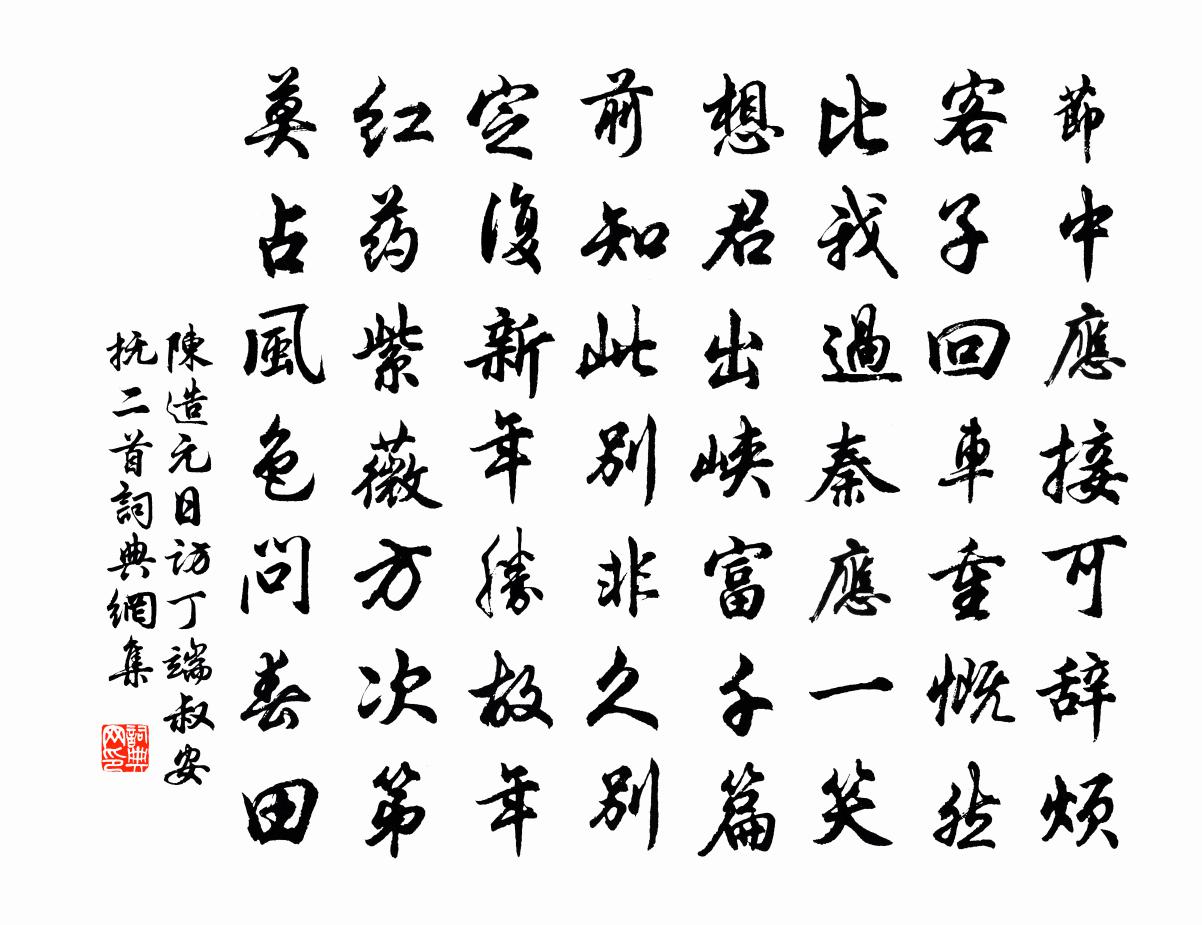 節中應接可辞烦
客子回車重慨然
比我過秦應一笑
想君出峽富千篇
前知此别非久别
定復新年勝故年
红药紫薇方次第
莫占風色问春田
陳造元日访丁端叔安
抚二首詞典網集
詞典网印